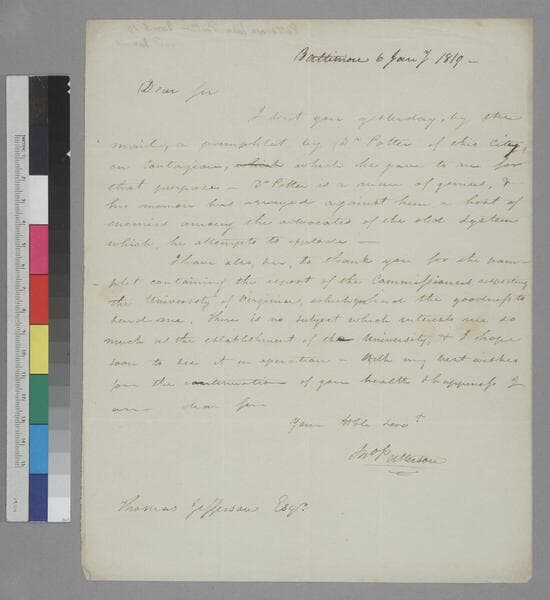 Baltimore 6 Jany 1819 –
Dear Sir
I sent you yesterday, by the
mail, a pamphlet by Dr Potter of this City,
on Contagion, which which he gave to me for
that purpose – Dr Potter is a man of genius, &
his memoir has arrayed against him a host of
enemies among the advocates of the old system
which, he attempts to explode –
I have also, sir, to thank you for the pam-
-plet containing the report of the Commissioners, respecting
the University of Virginia, which you had the goodness to
send me. There is no subject which interests me so
much as the establishment of the University, & I hope
soon to see it in operation – With my best wishes
for the continuation of your health & happiness I
am dear Sir
Your Hble Servt
Jno Patterson
Thomas Jefferson Esqr.